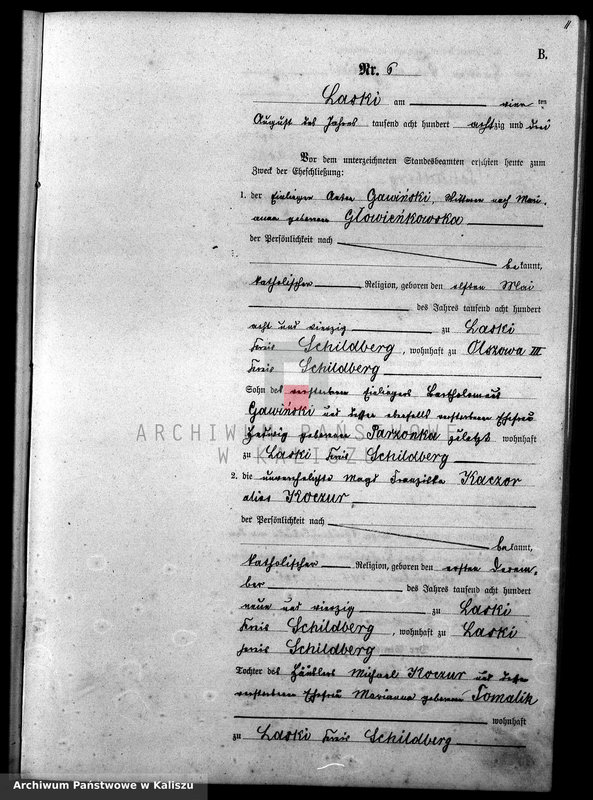 11
B.
Nr. 6
Laski am vierten
August des Jahres tausend acht hundert achtzig und drei
Vor dem unterzeichneten Standesbeamten erschien heute zum
Zweck der Eheschließung:
1. der Einlieger Anton Gawiński, Wittwer nach Mari-
anna geborenen Głowieńkowska
der Persönlichkeit nach
bekannt,
katholischer Religion, geboren den elften Mai
des Jahres tausend acht hundert
acht und vierzig zu Laski
Kreis Schildberg, wohnhaft zu Olszowa III
Kreis Schildberg
Sohn des verstorbenen Einliegers Bartholomaus
Gawiński und dessen ebenfalls verstorbenen Ehefrau
Hedwig geborenen Parzonka zuletzt wohnhaft
zu Laski Kreis Schildberg
2. die unverehelichte Magd Franziska Kaczor
alias Koczur,
der Persönlichkeit nach
bekannt,
katholischer Religion, geboren den ersten Dezem-
ber des Jahres tausend acht hundert
neun und vierzig zu Laski
Kreis Schildberg, wohnhaft zu Laski
Kreis Schildberg
Tochter des Häuslers Michael Koczur und dessen
verstorbenen Ehefrau Marianna geborenen Tomalik
wohnhaft
zu Laski Kreis Schildberg
ARCHIWUM PAŃSTWOWE
W KALISZU
Archiwum Państwowe w Kaliszu